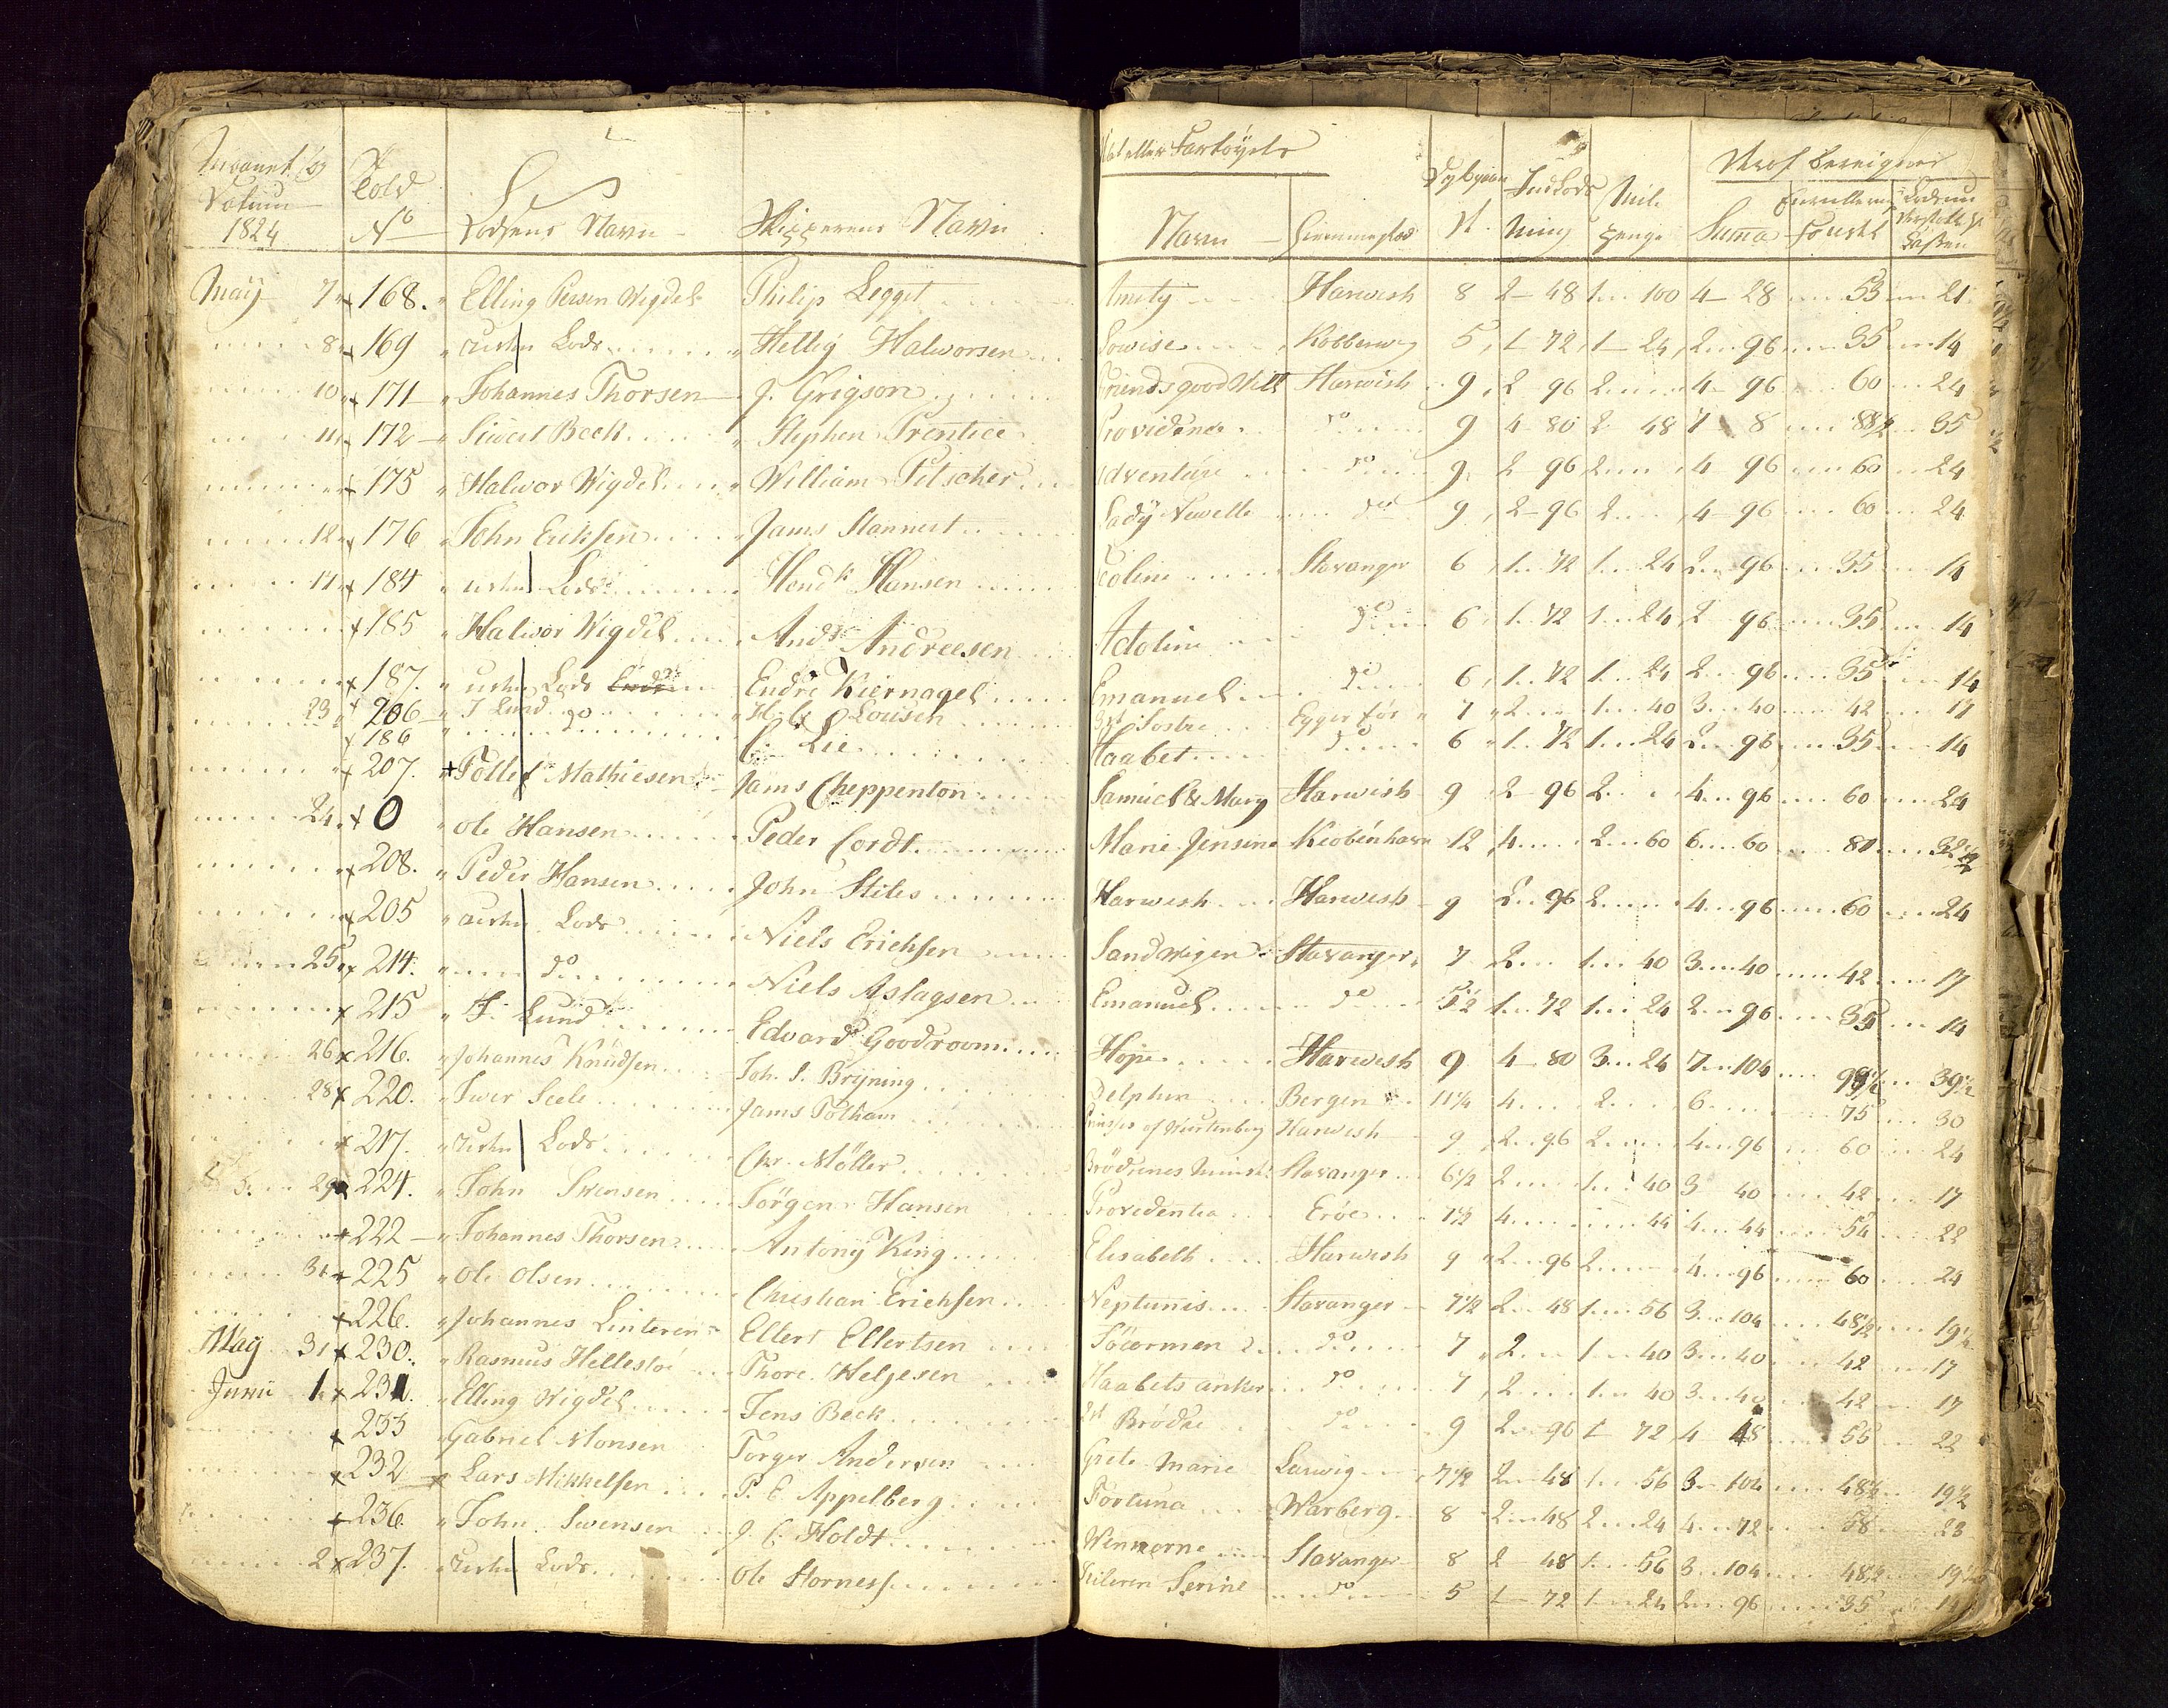 1824 Told No Lodsens Navn Skipperens Navn
Navn Hiemmested Summa
May 7 168. Elling Persen Wigdel Philip Legget Amity Harwish 8 2 48 1 100 4 28 53 21
8 169 Lods Hellig Halvorsen Lowise 5 1 72 1 24 2 96 35 14
10 171 Johannes Thorsen J. Grigson Friends good Will Harwish 9 2 96 2 4 96 60 24
11 172 Siwert Beck Stephen Prentice Providence do 9 4 80 2 48 7 8 88½ 35
175 Halwor Wigdel William Pitscher Adventure do 9 2 96 2 4 96 60 24
12 176 John Eriksen Jams Stannest Lady Newelle do 9 2 96 2 4 96 60 24
14 184 Lods Hendk Hansen Stavanger 6 1 72 1 24 2 96 35 14
185 Halwor Wigdel Andr Andreesen do 6 1 72 1 24 2 96 35 14
187. Lods Endre Kiernagel Emanuel do 6 1 72 1 24 2 96 35 14
23 206 J Lund do Lousen Sostre 7 2 1 40 3 40 42 17
186 C. Lie Haabet do 6 1 72 1 24 2 96 35 14
207. Tollef Mathiesen Jams Cheppenton Samuel & Mary Harwish 9 2 96 2 4 96 60 24
24 0 Ole Hansen Peder Cordt Marie Jensine Kiobenhavn 12 4 2 60 6 60 80 32
208. Peder Hansen John Stiles Harwish Harwish 9 2 96 2 4 96 60 24
205 Lods Niels Erichsen Sandwigen Stavanger 7 2 1 40 3 40 42 17
25 214. do Niels Aslagsen Emanuel do 5½ 1 72 1 24 2 96 35 14
215 J. Lund Edvard Goodroom Hope Harwish 9 4 80 3 24 7 104 99½ 39½
26 216. Johannes Knudsen Joh. S. Bryning Delphin Bergen 11¼ 4 2 6 75 30
28 220. Iwer Seele Jams Totham of Würtenberg Harwish 9 2 96 2 4 96 60 24
217. Lods Chr. Möller Brödrenes Stavanger 6½ 2 1 40 3 40 42 17
29 224. John Swensen Jörgen Hansen Providentia Eröe 7½ 4 44 4 44 54 22
222 Johannes Thorsen Antony King Elisabeth Harwish 9 2 96 2 4 96 60 24
31 225 Ole Olsen Christian Erichsen Neptunis Stavanger 7½ 2 48 1 56 3 104 48½ 19½
226. Johannes Linteren Ellert Ellertsen do 7 2 1 40 3 40 42 17
May 31 230. Rasmus Hellestoe Thore Helgesen Haabets anker do 7 2 1 40 3 40 42 17
Juni 1 231. Elling Wigdel Jens Beck Brödre do 9 2 96 1 72 4 48 55 22
233 Gabriel Monsen Torger Andersen Grete Marie Larwig 7½ 2 48 1 56 3 104 48½ 19½
232 Lars Mikkelsen P. E. Appelberg Fortuna Warberg 8 2 48 2 24 4 72 58 23
236. John Swensen J. C. Holdt Stavanger 8 2 48 1 56 3 104 48½ 19½
2 237. Lods Ole Storness Serine do 5 1 72 1 24 2 96 35 14